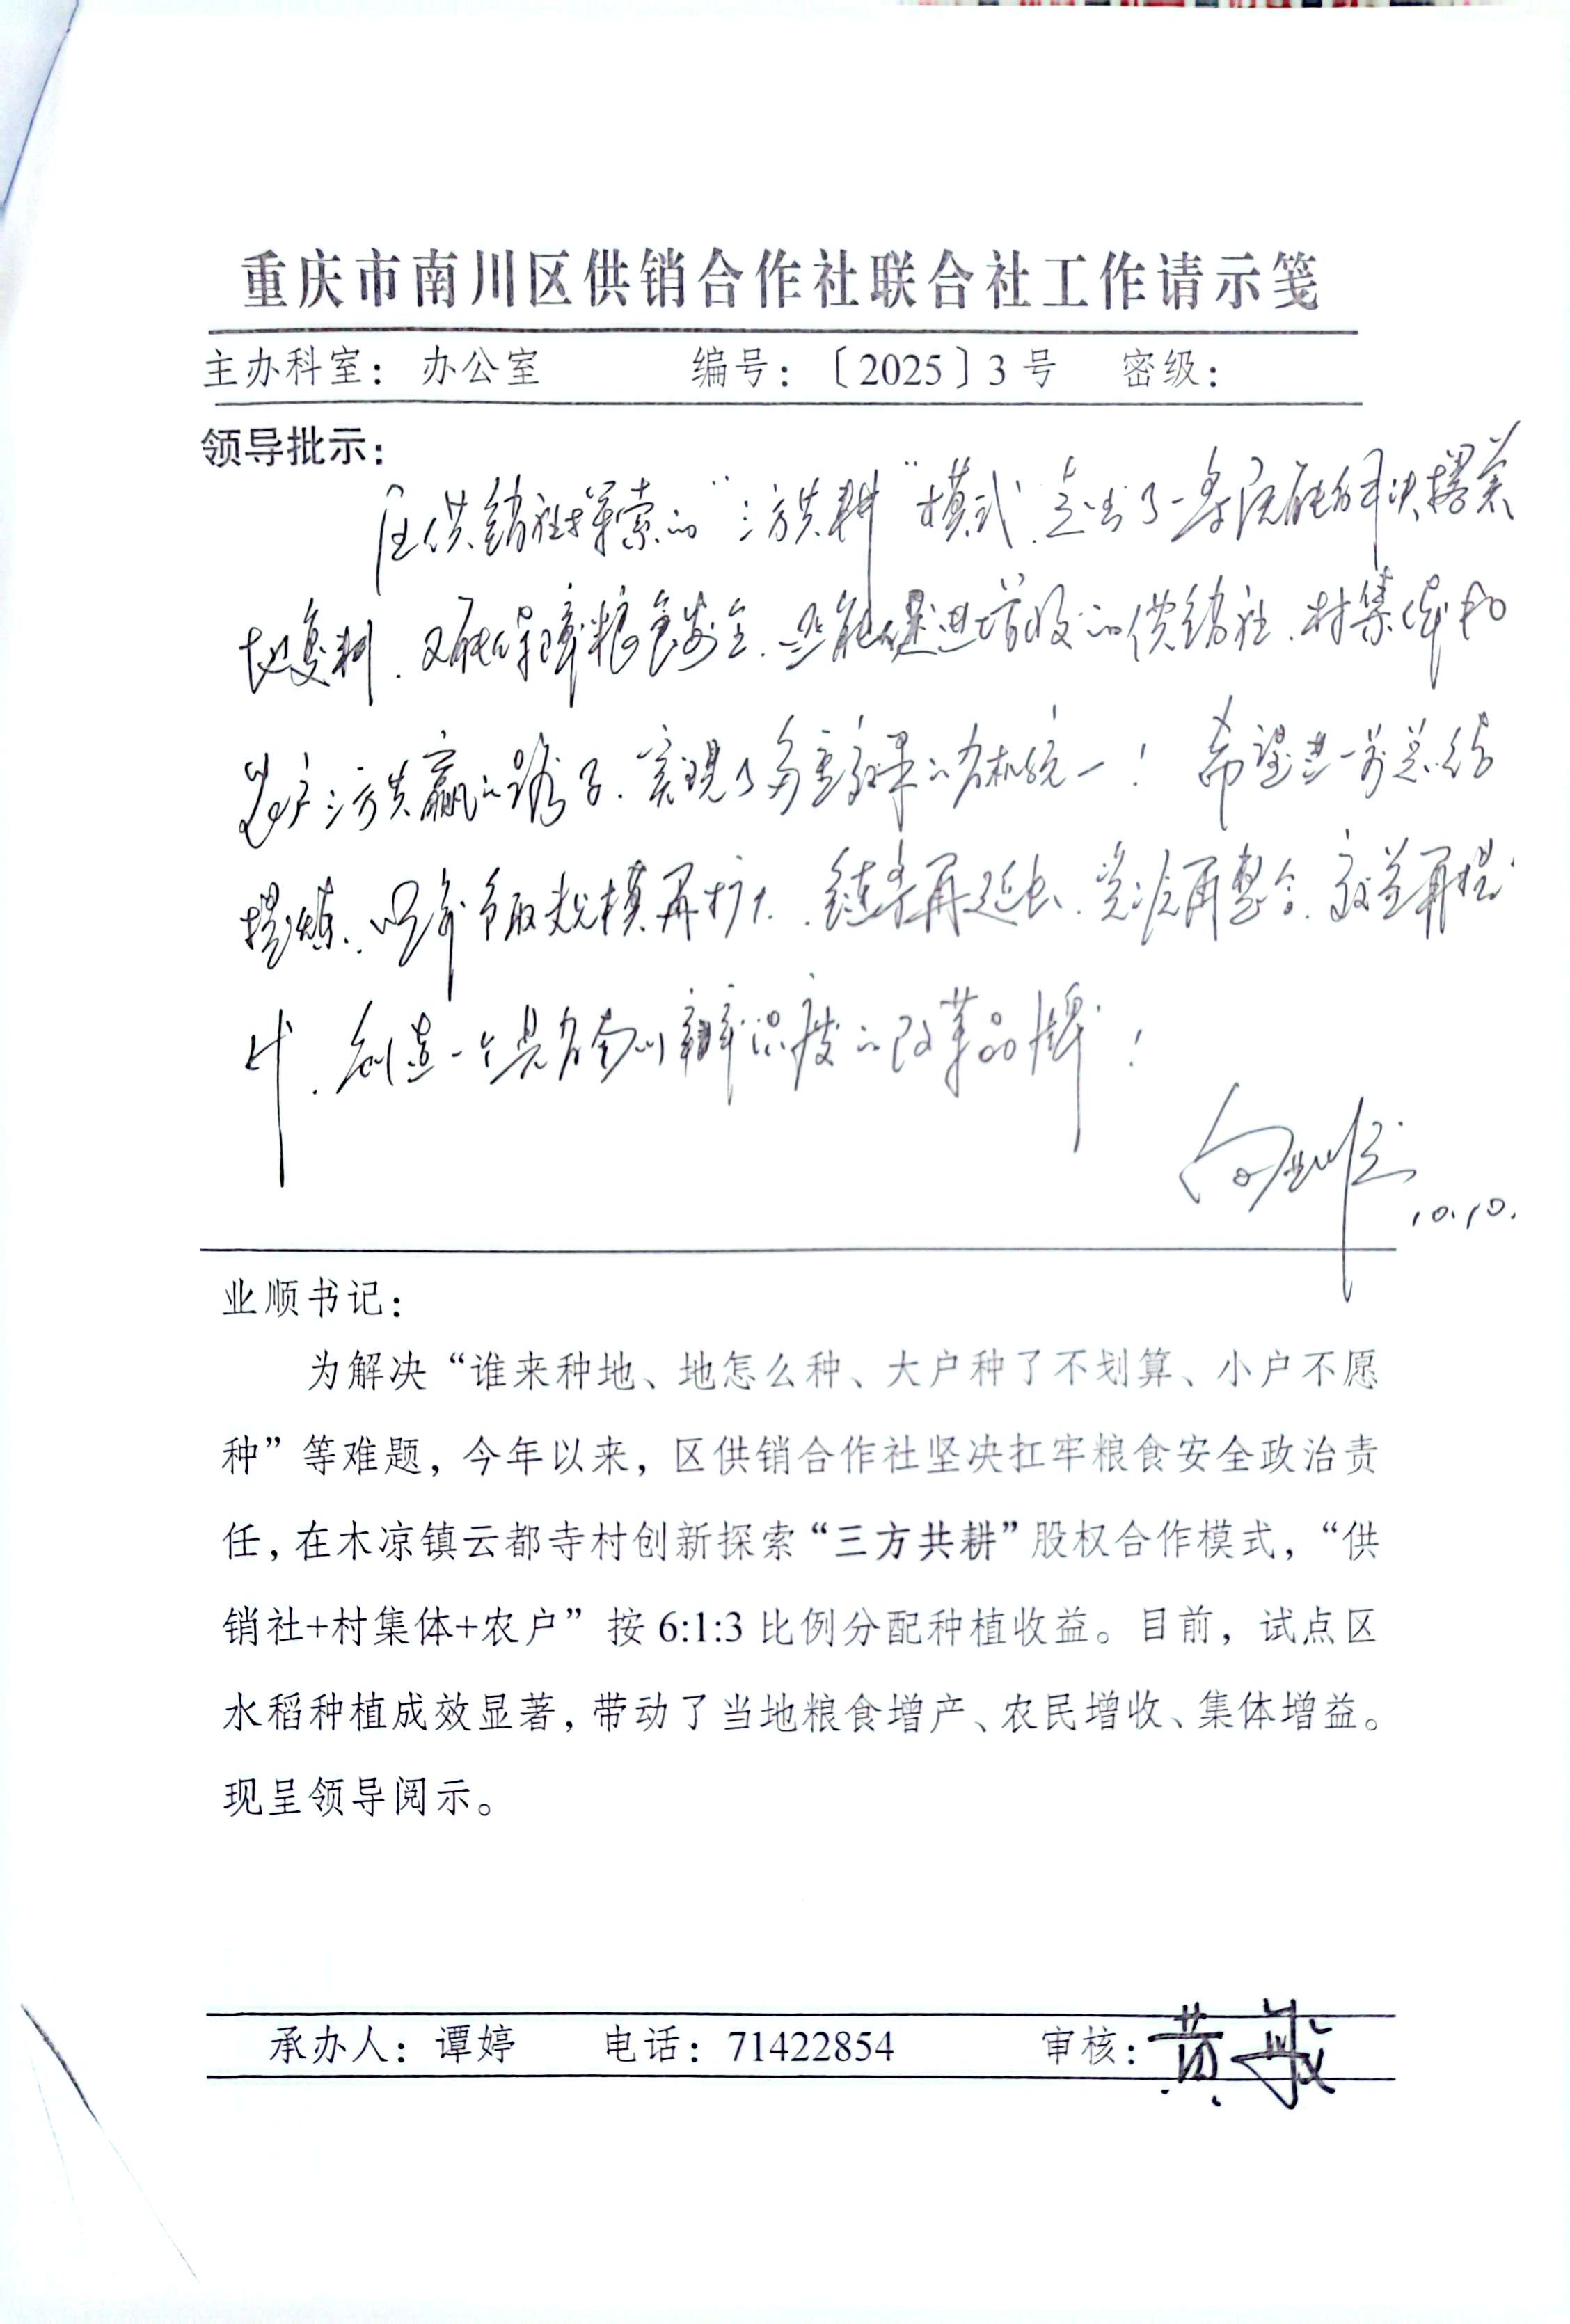 重庆市南川区供销合作社联合社工作请示笺
主办科室：办公室 编号：〔2025〕3号 密级：
领导批示：
区供销社探索的“三方共耕”模式，走出了一条既能解决撂荒
地复耕，又能保障粮食安全，还能促进增收的供销社、村集体和
农户三方共赢的路子，实现了多重效果的有机统一！希望进一步总结
提炼，以争取规模再扩大，链条再延长，资源再整合，效益再提
升，创造一个具有南川辨识度的改革品牌！
向业顺
10.10.
业顺书记：
为解决“谁来种地、地怎么种、大户种了不划算、小户不愿
种”等难题，今年以来，区供销合作社坚决扛牢粮食安全政治责
任，在木凉镇云都寺村创新探索“三方共耕”股权合作模式，“供
销社+村集体+农户”按6:1:3比例分配种植收益。目前，试点区
水稻种植成效显著，带动了当地粮食增产、农民增收、集体增益。
现呈领导阅示。
承办人：谭婷 电话：71422854 审核：黄